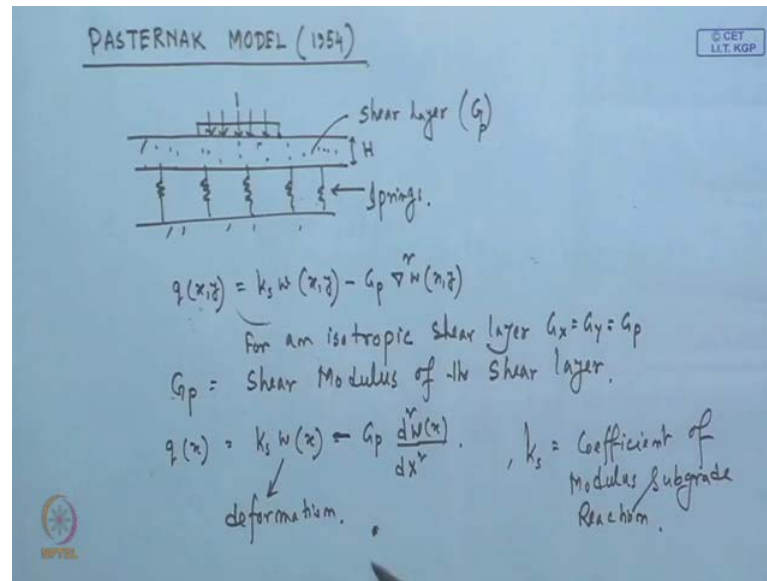 PASTERNAK MODEL (1954)
© CET
I.I.T. KGP
Shear Layer (Gp)
H
Springs.
q(x,y) = ks w(x,y) - Gp ∇² w(x,y)
For an isotropic Shear layer Gx = Gy = Gp
Gp = Shear Modulus of the Shear layer.
q(x) = ks w(x) - Gp d²w(x)/dx² . , ks = Coefficient of
Modulus Subgrade
deformation. Reaction.
NPTEL